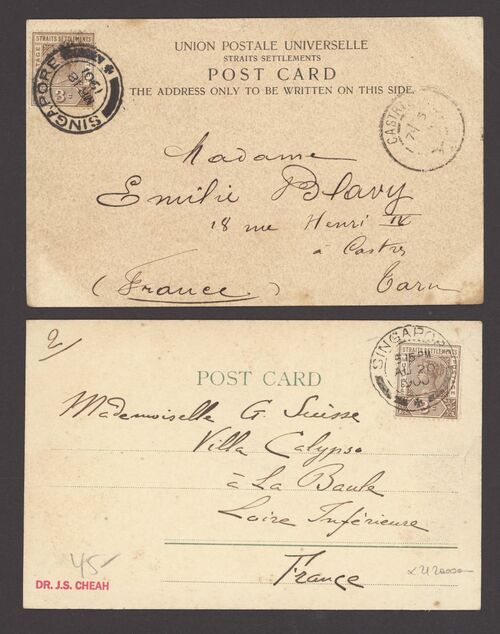 STRAITS SETTLEMENTS
SINGAPORE
1901
UNION POSTALE UNIVERSELLE
STRAITS SETTLEMENTS
POST CARD
THE ADDRESS ONLY TO BE WRITTEN ON THIS SIDE.
Madame
Emilie Blavy
18 rue Henri IV
à Castres
(France.) Tarn
2)
SINGAPOR
STRAITS SETTLEMENTS
AU 20
POST CARD
Mademoiselle G. Suisse
Villa Calypso
à La Baule
Loire Inférieure
France
45-
DR. J.S. CHEAH